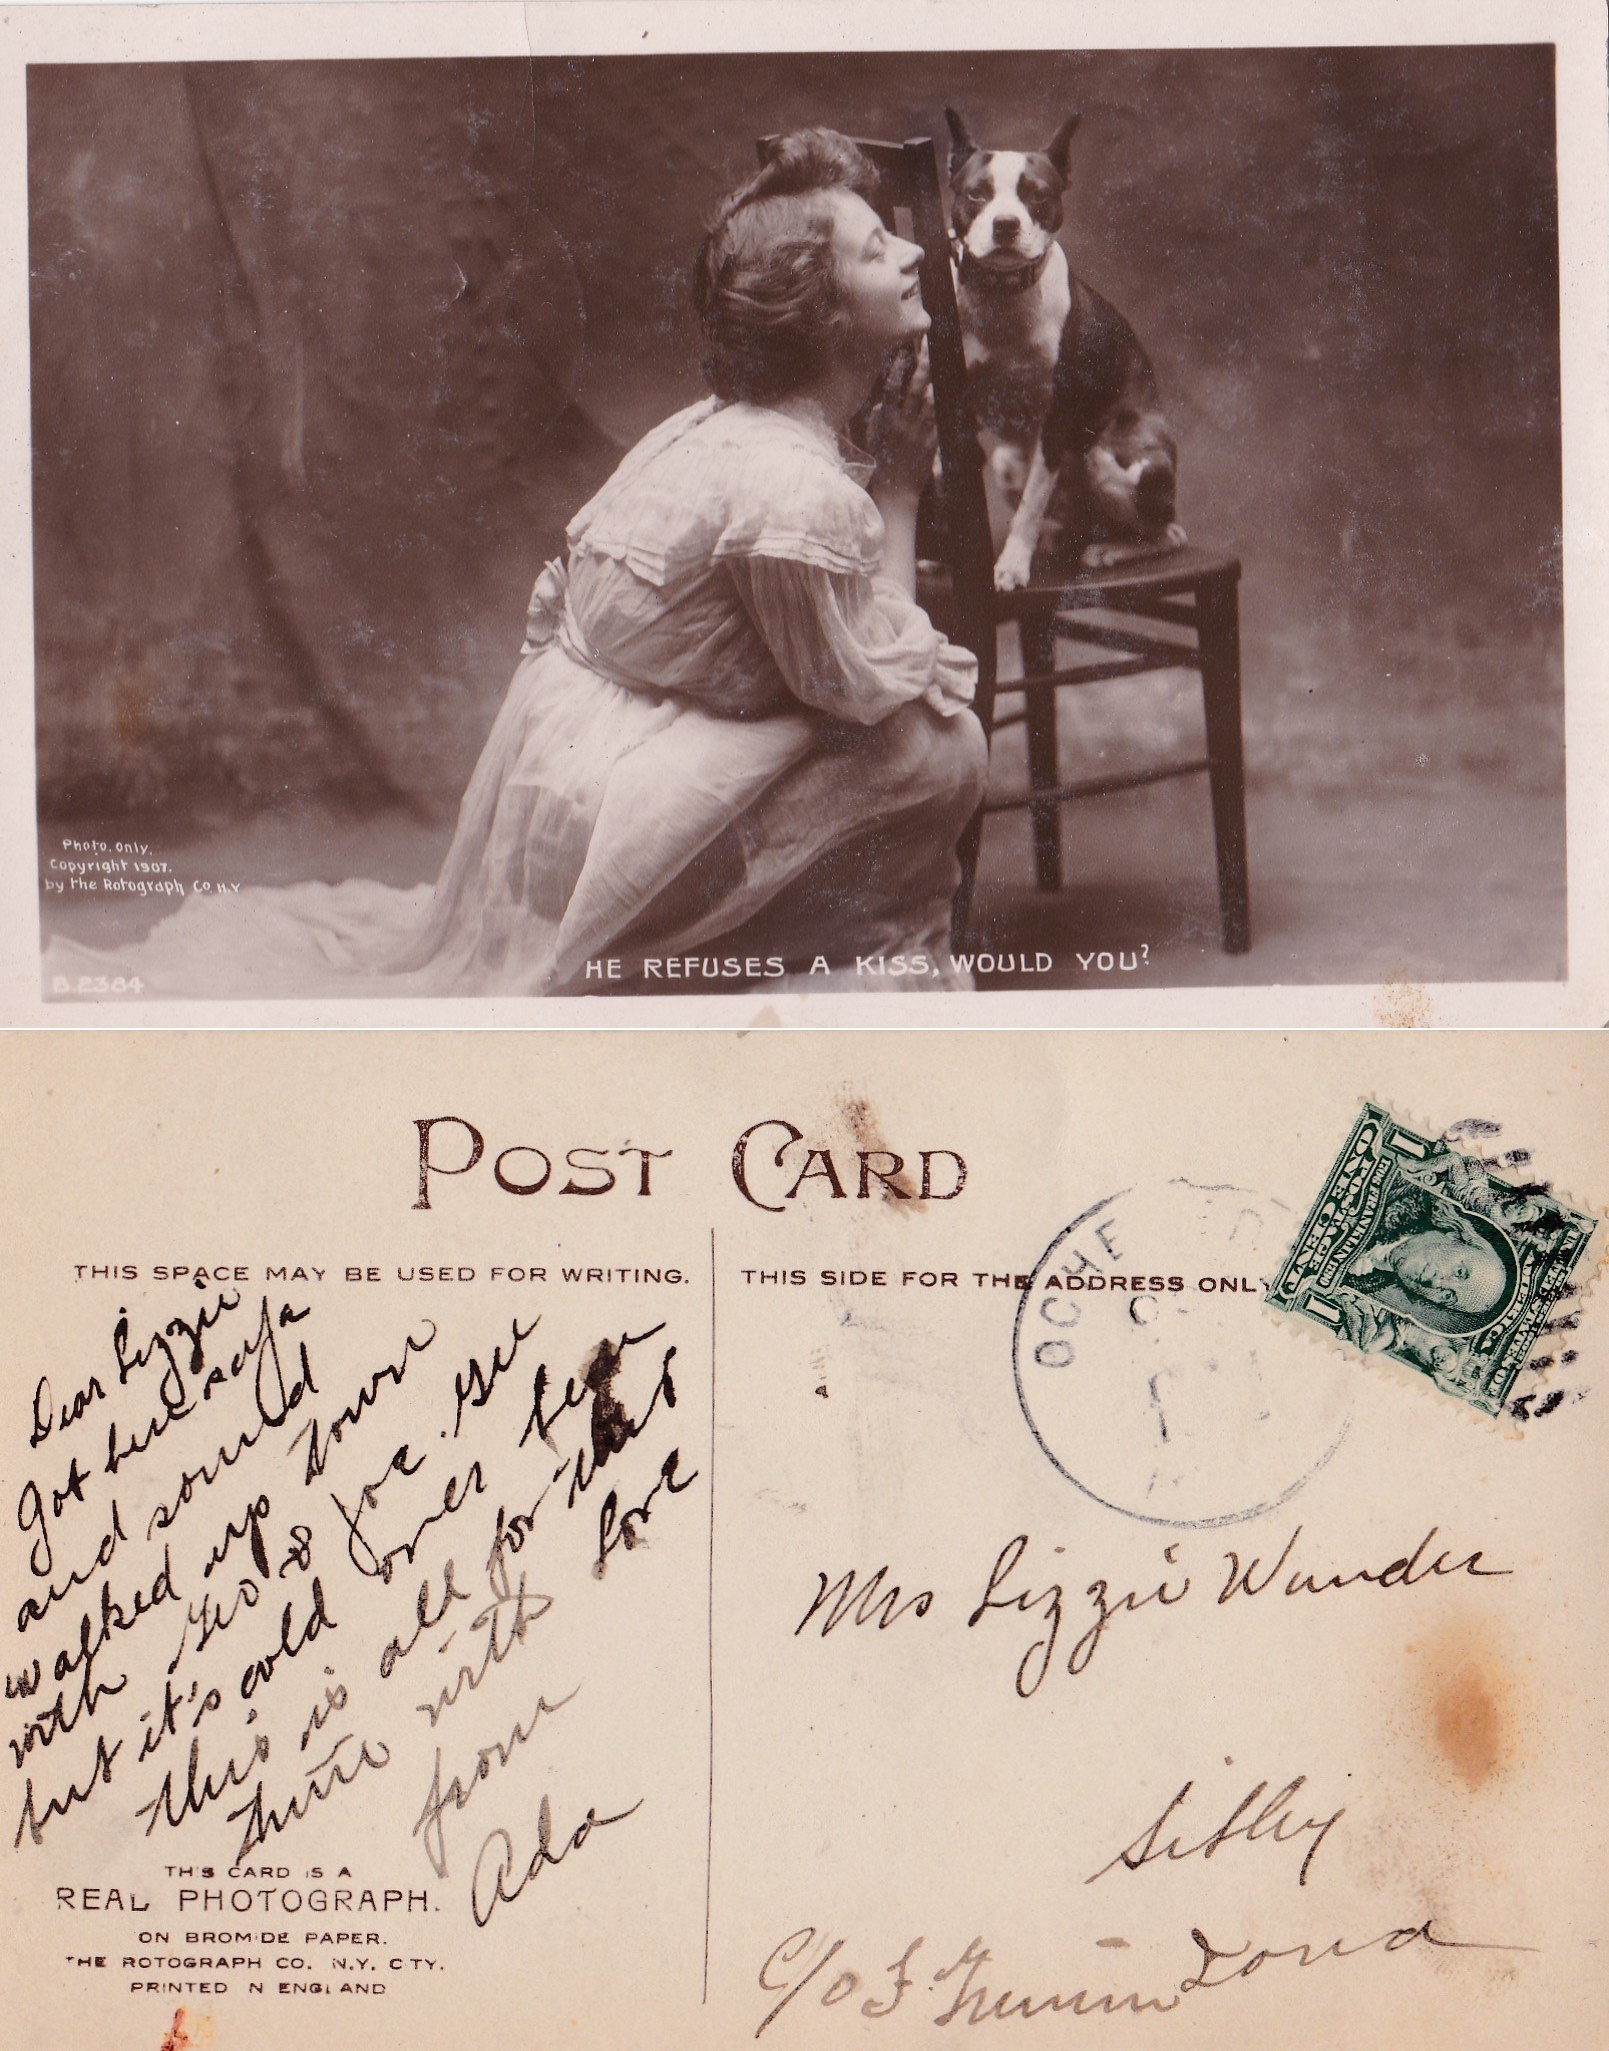 Photo. only.
Copyright 1907.
by the Rotograph Co. N.Y
B.2384
HE REFUSES A KISS, WOULD YOU?
POST CARD
THIS SPACE MAY BE USED FOR WRITING.
THIS SIDE FOR THE ADDRESS ONLY
OCHE
ONE CENT
1
1
Dear Lizzie
Got here safe
and sound
walked up town
with Geo & Joe. Gee
but it's cold over here
this is all for this
time with love
from
Ada
Mrs Lizzie Wunder
Sibley
Iowa
C/O F.
THIS CARD IS A
REAL PHOTOGRAPH.
ON BROMIDE PAPER.
THE ROTOGRAPH CO. N.Y. CITY.
PRINTED IN ENGLAND